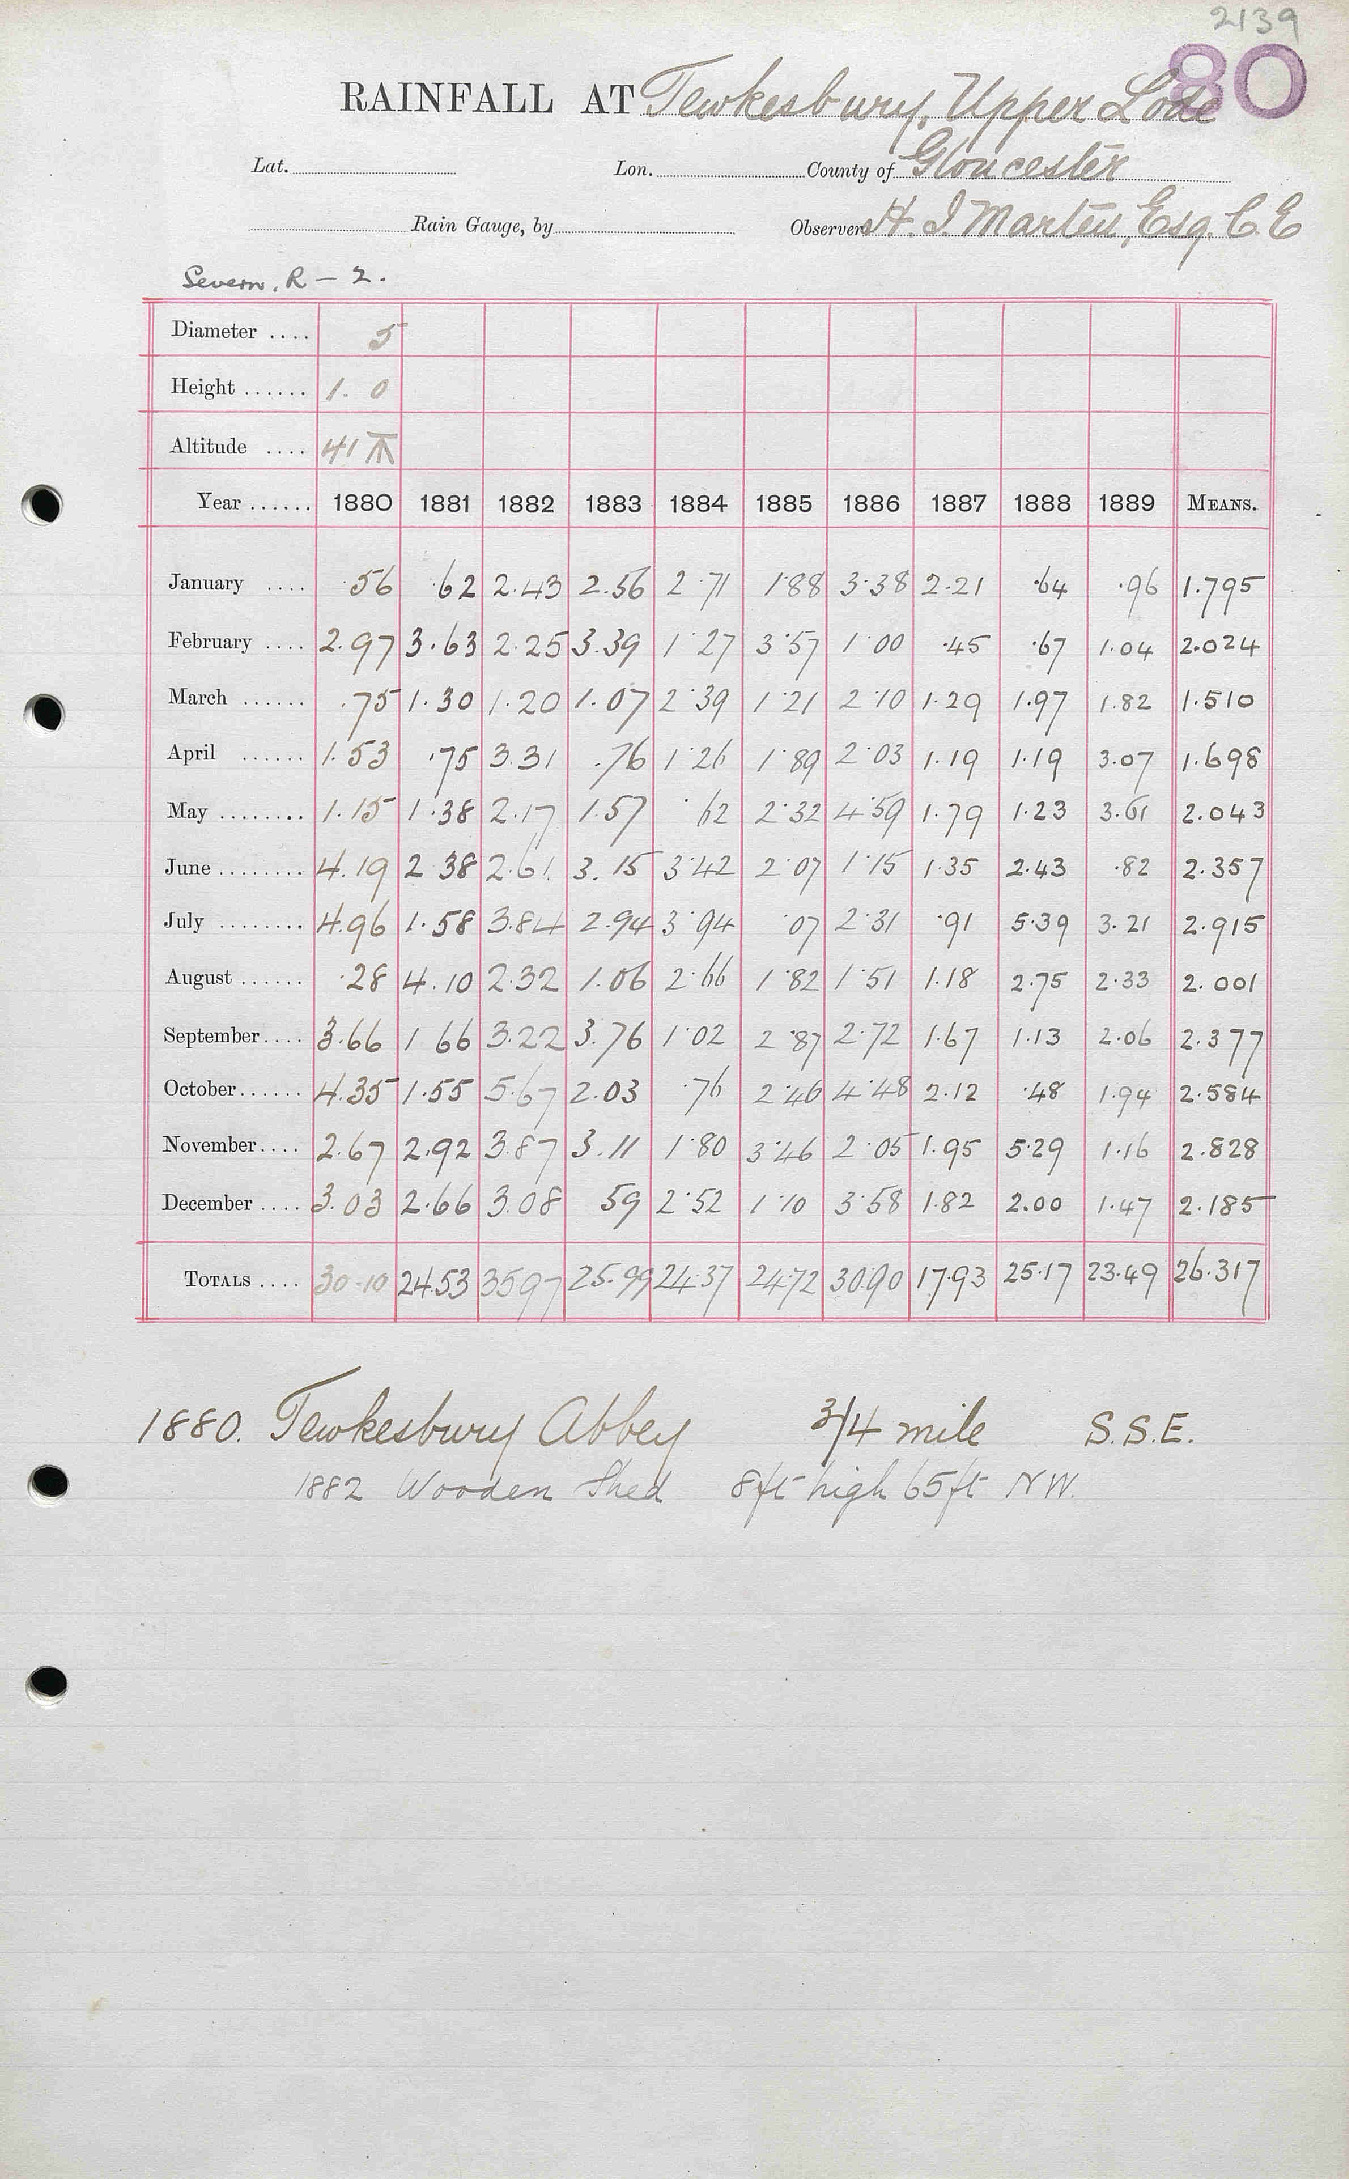 2139
80
RAINFALL AT Tewkesbury, Upper Lode
Lat. Lon. County of Gloucester
Rain Gauge, by Observer H. J Marten, Esq. C. E
Severn, R – 2.
Diameter .... 5
Height ...... 1. 0
Altitude .... 41
Year ...... 1880 1881 1882 1883 1884 1885 1886 1887 1888 1889 MEANS.
January .... .56 .62 2.43 2.56 2.71 1.88 3.38 2.21 .64 .96 1.795
February .... 2.97 3.63 2.25 3.39 1.27 3.57 1.00 .45 .67 1.04 2.024
March ...... .75 1.30 1.20 1.07 2.39 1.21 2.10 1.29 1.97 1.82 1.510
April ...... 1.53 .75 3.31 .76 1.26 1.89 2.03 1.19 1.19 3.07 1.698
May ........ 1.15 1.38 2.17 1.57 .62 2.32 4.59 1.79 1.23 3.61 2.043
June ........ 4.19 2.38 2.61 3.15 3.42 2.07 1.15 1.35 2.43 .82 2.357
July ........ 4.96 1.58 3.84 2.94 3.94 .07 2.31 .91 5.39 3.21 2.915
August ...... .28 4.10 2.32 1.06 2.66 1.82 1.51 1.18 2.75 2.33 2.001
September .... 3.66 1.66 3.22 3.76 1.02 2.87 2.72 1.67 1.13 2.06 2.377
October ...... 4.35 1.55 5.67 2.03 .76 2.46 4.48 2.12 .48 1.94 2.584
November .... 2.67 2.92 3.87 3.11 1.80 3.46 2.05 1.95 5.29 1.16 2.828
December .... 3.03 2.66 3.08 59 2.52 1.10 3.58 1.82 2.00 1.47 2.185
TOTALS .... 30.10 24.53 35.97 25.99 24.37 24.72 30.90 17.93 25.17 23.49 26.317
1880. Tewkesbury Abbey 3/4 mile S.S.E.
1882 Wooden Shed 8ft high 65ft NW.